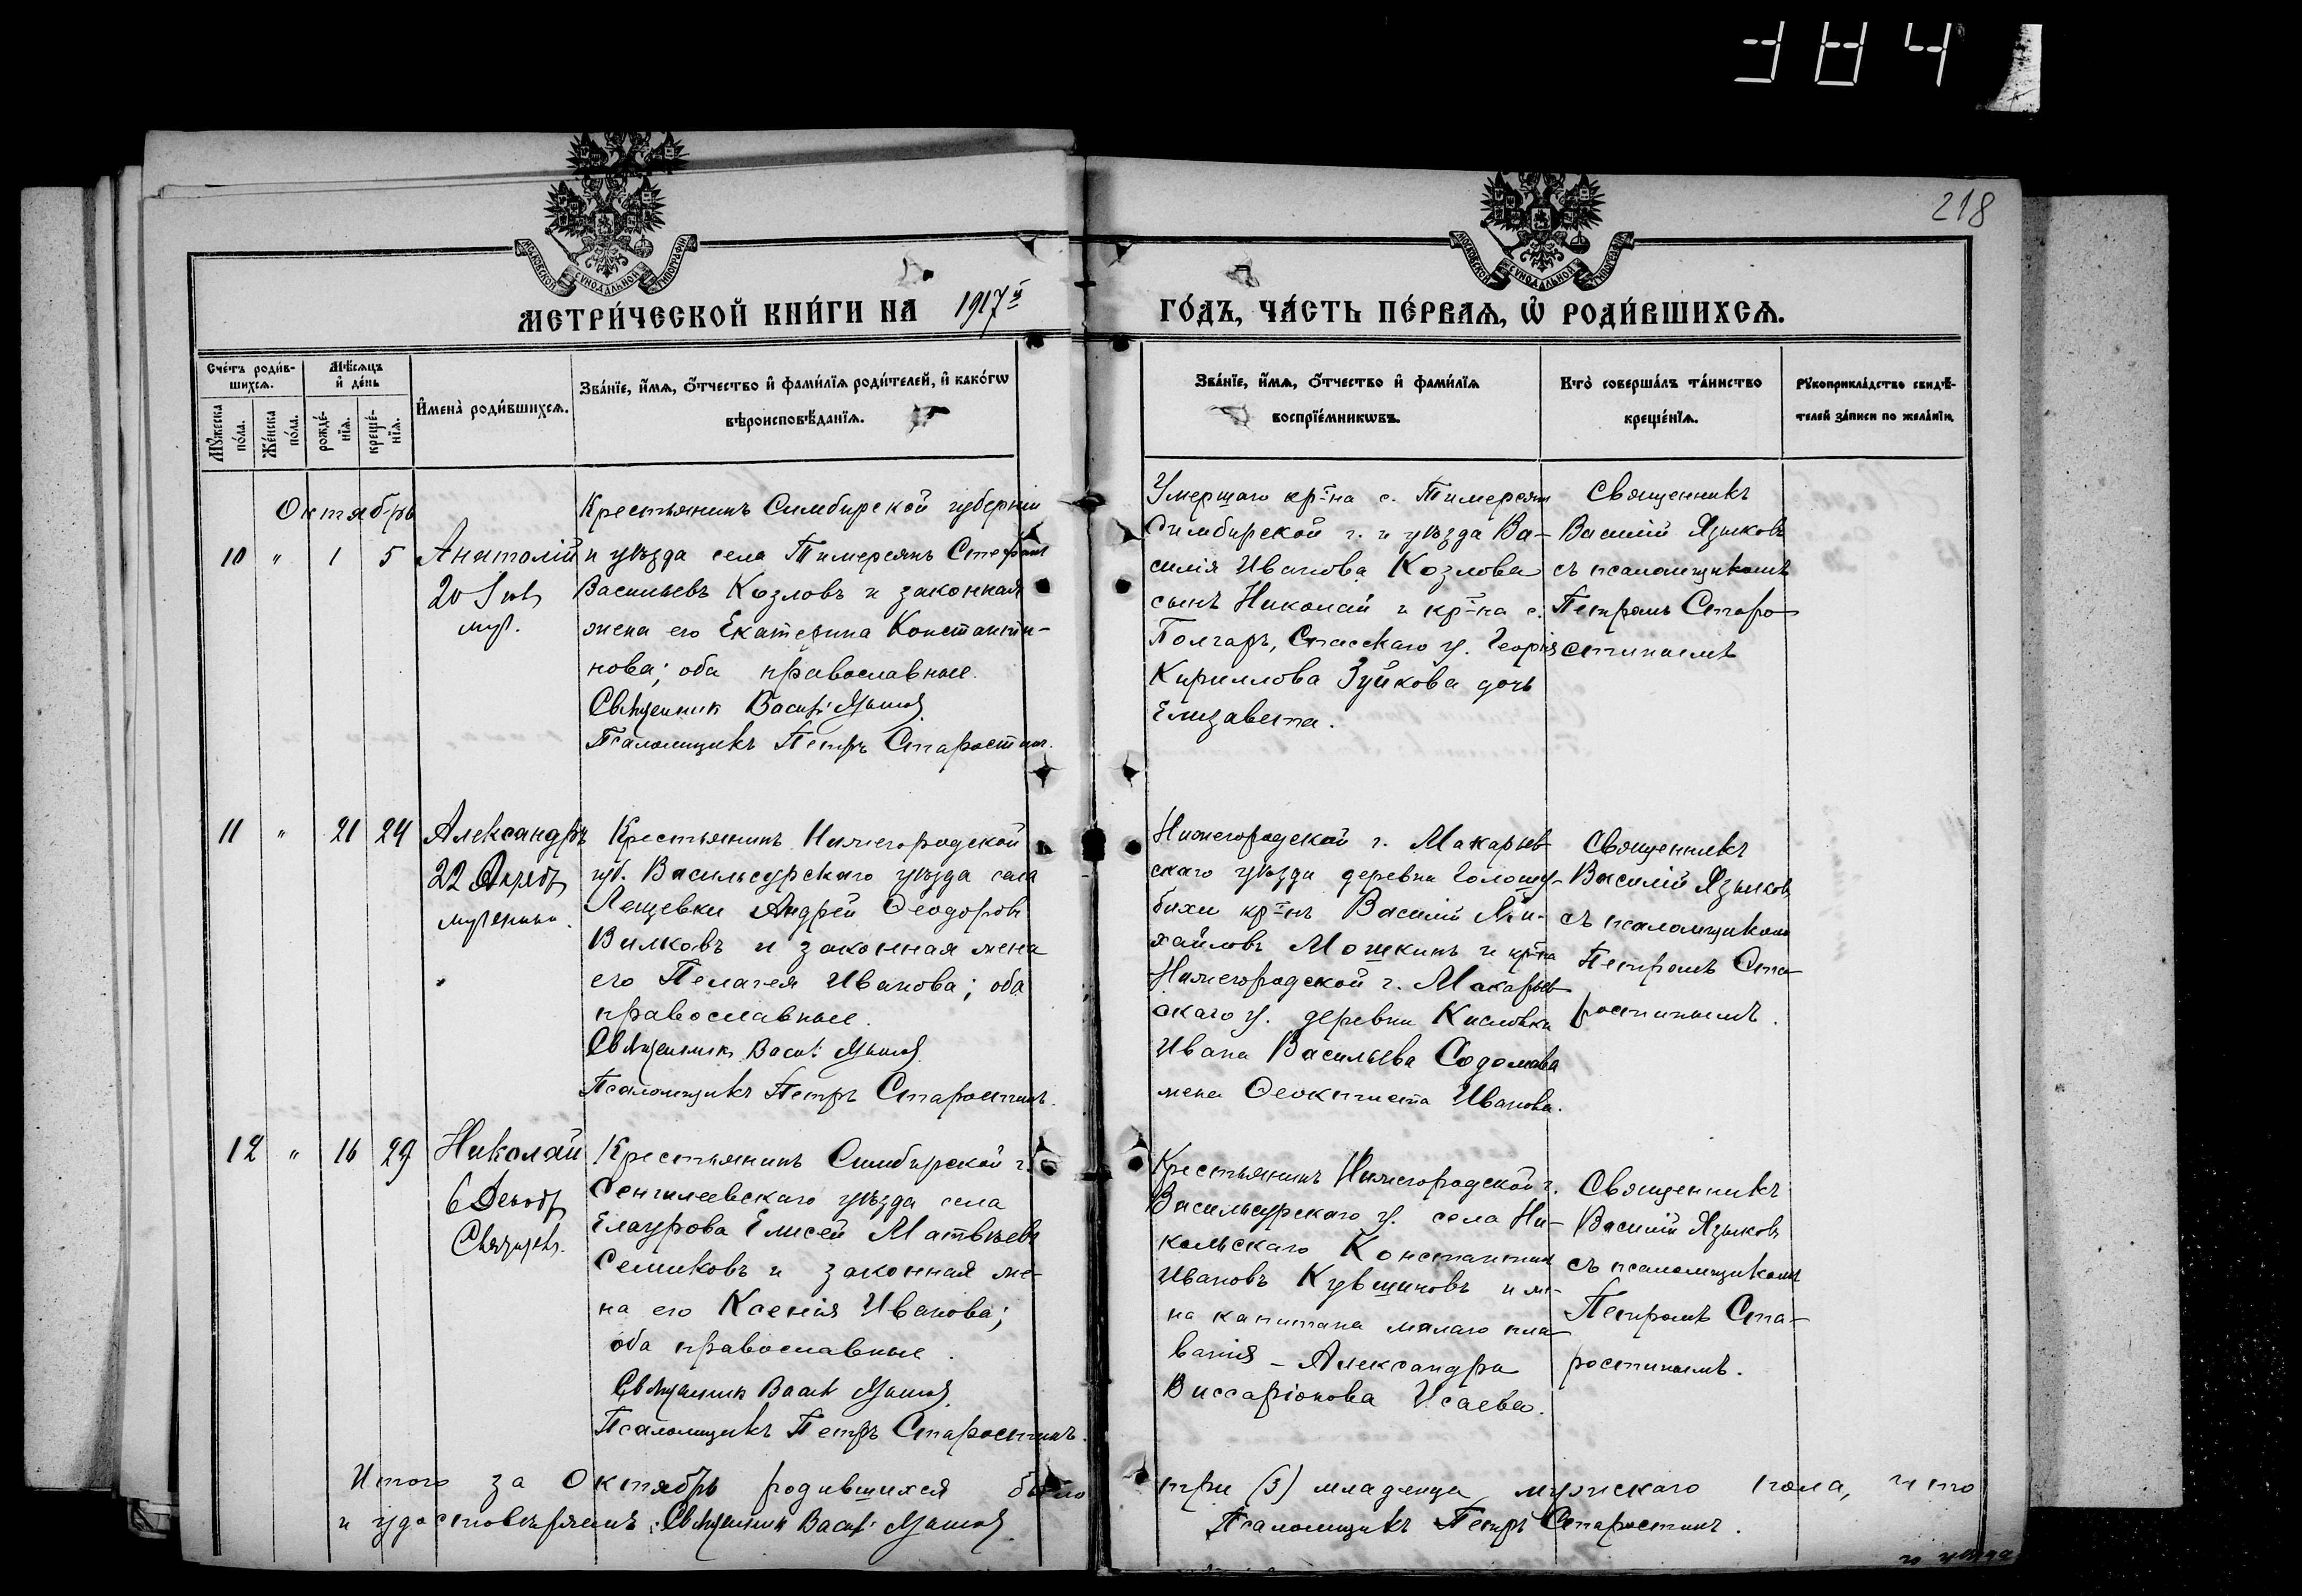 384
218
МОСКОВСКОЙ СѴНОДАЛЬНОЙ ТИПОГРАФІИ
МОСКОВСКОЙ СѴНОДАЛЬНОЙ ТИПОГРАФІИ
МЕТРИ́ЧЕСКОЙ КНИ́ГИ НА 1917й ГО́ДЪ, ЧА́СТЬ ПЕ́РВАѦ, Ѡ҆ РОДИ́ВШИХСѦ.
Сче́тъ роди́в-
шихсѧ.
Мѣ́сѧцъ
и҆ де́нь
Мꙋ́жеска
по́ла.
Же́нска
по́ла.
рожде́-
нїѧ.
креще́-
нїѧ.
И҆мена̀ роди́вшихсѧ.
Зва́нїе, и҆́мѧ, ѻ҆́тчество и҆ фами́лїѧ роди́телей, и҆ како́гѡ
вѣроисповѣ́данїѧ.
Зва́нїе, и҆́мѧ, ѻ҆́тчество и҆ фами́лїѧ
воспрїе́мникѡвъ.
Кто̀ соверша́лъ та́инство
креще́нїѧ.
Рꙋкоприкла́дство свидѣ́-
телей за́писи по жела́нїю.
Октябрь
10 " 1 5 Анатолій
20 Iюл,
муч.
Крестьянинъ Симбирской губерніи
и уѣзда села Тимерсянъ Стефанъ
Васильевъ Козловъ и законная
жена его Екатерина Константи-
нова; оба православные.
Священник Васил.
Псаломщикъ Петръ Старостинъ.
Умершаго кр-на с. Тимерсянъ
Симбирской г. и уѣзда Ва-
силія Иванова Козлова
сынъ Николай и кр-на с.
Болгаръ, Спасскаго у. Георгія
Кириллова Зуйкова дочь
Елизавета.
Священникъ
Василій Языковъ
съ псаломщикомъ
Петромъ Старо-
стинымъ
11 " 21 24 Александръ
22 Октяб,
мученика.
Крестьянинъ Нижегородской
губ. Васильсурскаго уѣзда села
Лещевки Андрей Ѳеодоровъ
Вилковъ и законная жена
его Пелагея Иванова; оба
православные.
Священник Васил.
Псаломщикъ Петръ Старостинъ.
Нижегородской г. Макарьев-
скаго уѣзда деревни Голошу-
бихи кр-нъ Василій Ми-
хайловъ Мошкинъ и кр-на
Нижегородской г. Макарьев-
скаго у. деревни Кисловки
Ивана Васильева Содомова
жена Ѳеоктиста Иванова.
Священникъ
Василій Языковъ
съ псаломщикомъ
Петромъ Ста-
ростинымъ.
12 " 16 29 Николай
6 Декаб,
Святителя.
Крестьянинъ Симбирской г.
Сенгилеевскаго уѣзда села
Елаурова Елисей Матвѣевъ
Семиковъ и законная же-
на его Ксенія Иванова;
оба православные.
Священник Васил.
Псаломщикъ Петръ Старостинъ.
Крестьянинъ Нижегородской г.
Васильсурскаго у. села Ни-
кольскаго Константинъ
Ивановъ Кувшиновъ и же-
на капитана малаго пла-
ванія - Александра
Виссаріонова Исаева.
Священникъ
Василій Языковъ
съ псаломщикомъ
Петромъ Ста-
ростинымъ.
Итого за Октябрь родившихся было три (3) младенца мужскаго пола, что
и удостовѣряемъ: Священник Васил. Псаломщикъ Петръ Старостинъ.